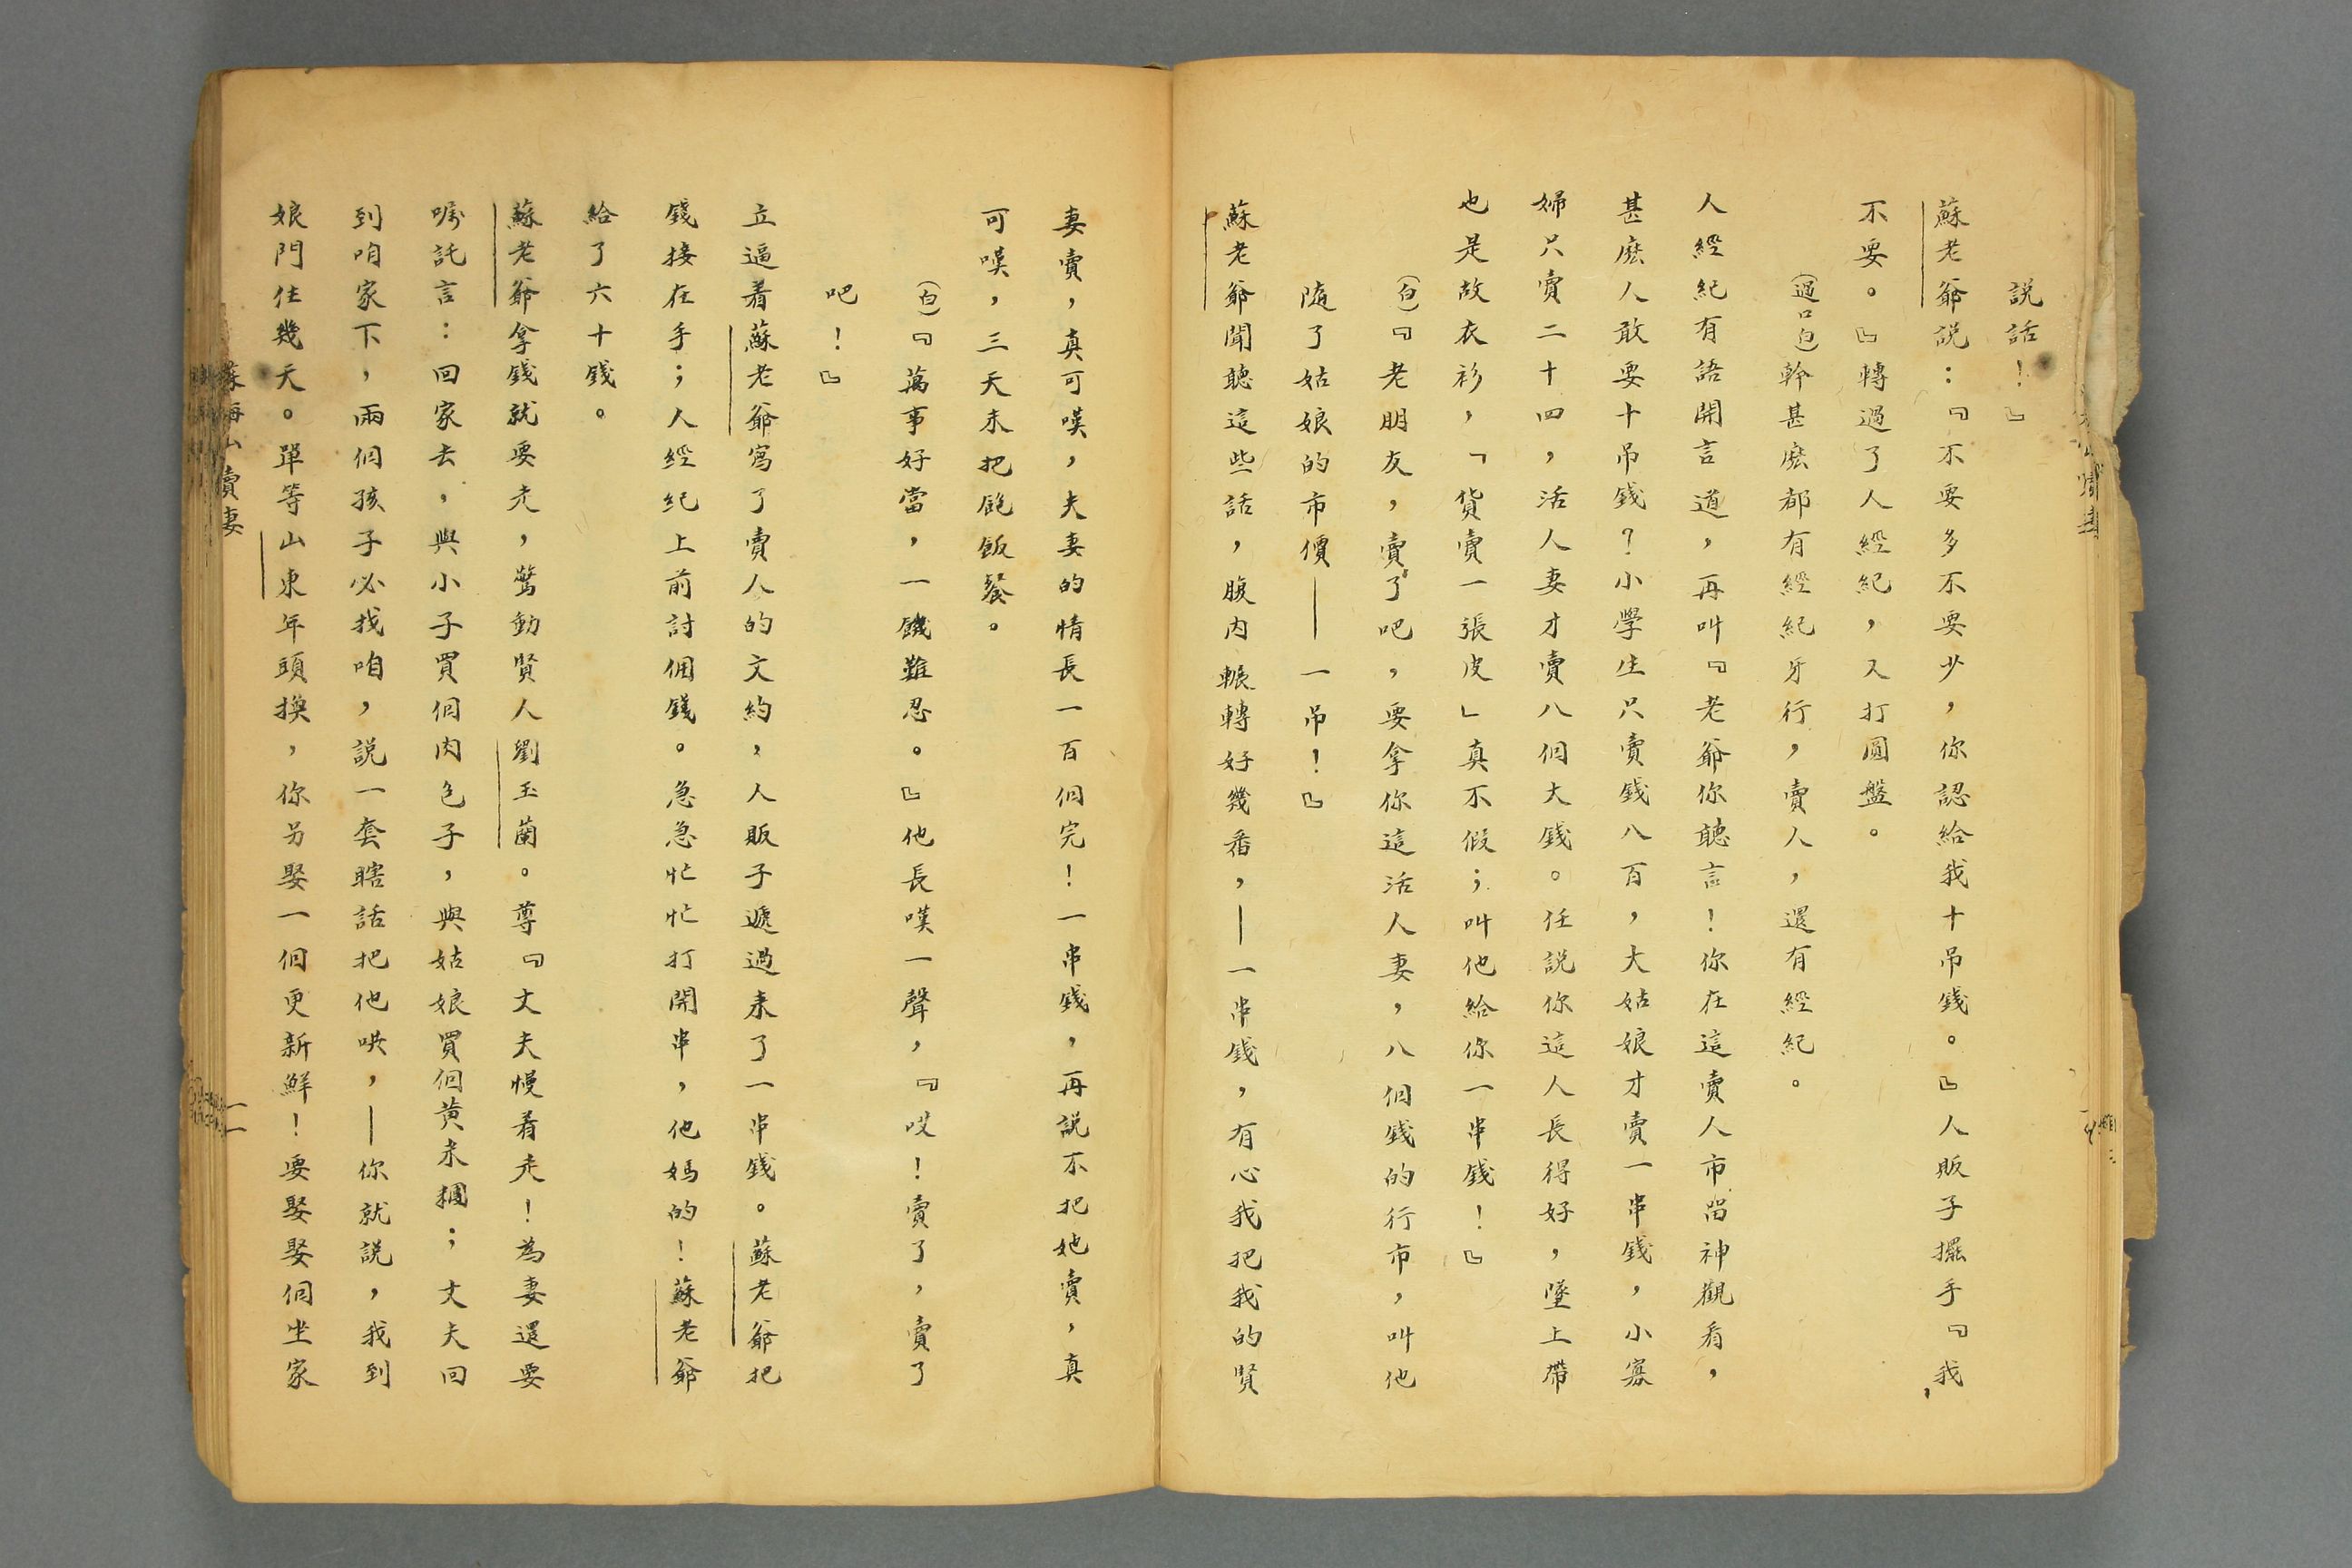 説話！』
蘇老爺説：『不要多不要少，你認給我十吊錢。』人販子擺手『我，
不要。』轉過了人經紀，又打圓盤。
（過口白）幹甚麽都有經紀牙行，賣人，還有經紀。
人經紀有語開言道，再叫『老爺你聽言！你在這賣人市留神觀看，
甚麽人敢要十吊錢？小學生只賣錢八百，大姑娘才賣一串錢，小寡
婦只賣二十四，活人妻才賣八個大錢。任説你這人長得好，墜上帶
也是故衣衫，「貨賣一張皮」真不假；叫他給你一串錢！』
（白）『老朋友，賣了吧，要拿你這活人妻，八個錢的行市，叫他
隨了姑娘的市價——一吊！』
蘇老爺聞聽這些話，腹内輾轉好幾番，—一串錢，有心我把我的賢
妻賣，真可嘆，夫妻的情長一百個完！一串錢，再説不把她賣，真
可嘆，三天未把飽飯餐。
（白）『萬事好當，一饑難忍。』他長嘆一聲，『哎！賣了，賣了
吧！』
立逼着蘇老爺寫了賣人的文約，人販子遞過來了一串錢。蘇老爺把
錢接在手；人經紀上前討佣錢。急急忙忙打開串，他媽的！蘇老爺
給了六十錢。
蘇老爺拿錢就要走，驚動賢人劉玉蘭。尊『丈夫慢着走！為妻還要
嘱託言：回家去，與小子買個肉包子，與姑娘買個黄米糰；丈夫回
到咱家下，兩個孩子必找咱，説一套瞎話把他哄，—你就説，我到
娘門住幾天。單等山東年頭換，你另娶一個更新鮮！要娶娶個坐家
蘇海山賣妻
一一